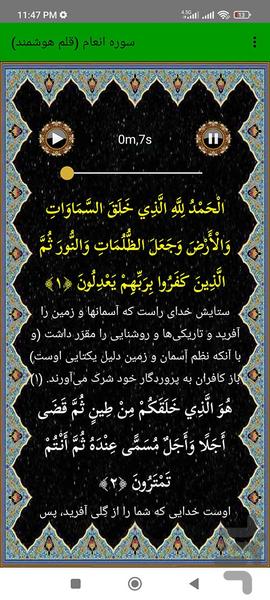 11:47 PM
4.5G
13
سوره انعام (قلم هوشمند)
0m,7s
الْحَمْدُ لِلَّهِ الَّذِي خَلَقَ السَّمَاوَاتِ
وَالْأَرْضَ وَجَعَلَ الظُّلُمَاتِ وَالنُّورَ ثُمَّ
الَّذِينَ كَفَرُوا بِرَبِّهِمْ يَعْدِلُونَ ﴿۱﴾
ستایش خدای راست که آسمانها و زمین را
آفرید و تاریکی‌ها و روشنایی را مقرّر داشت (و
با آنکه نظم آسمان و زمین دلیل یکتایی اوست)
باز کافران به پروردگار خود شرک می‌آورند. (۱)
هُوَ الَّذِي خَلَقَكُمْ مِنْ طِينٍ ثُمَّ قَضَى
أَجَلًا وَأَجَلٌ مُسَمًّى عِنْدَهُ ثُمَّ أَنْتُمْ
تَمْتَرُونَ ﴿۲﴾
اوست خدایی که شما را از گِلی آفرید، پس